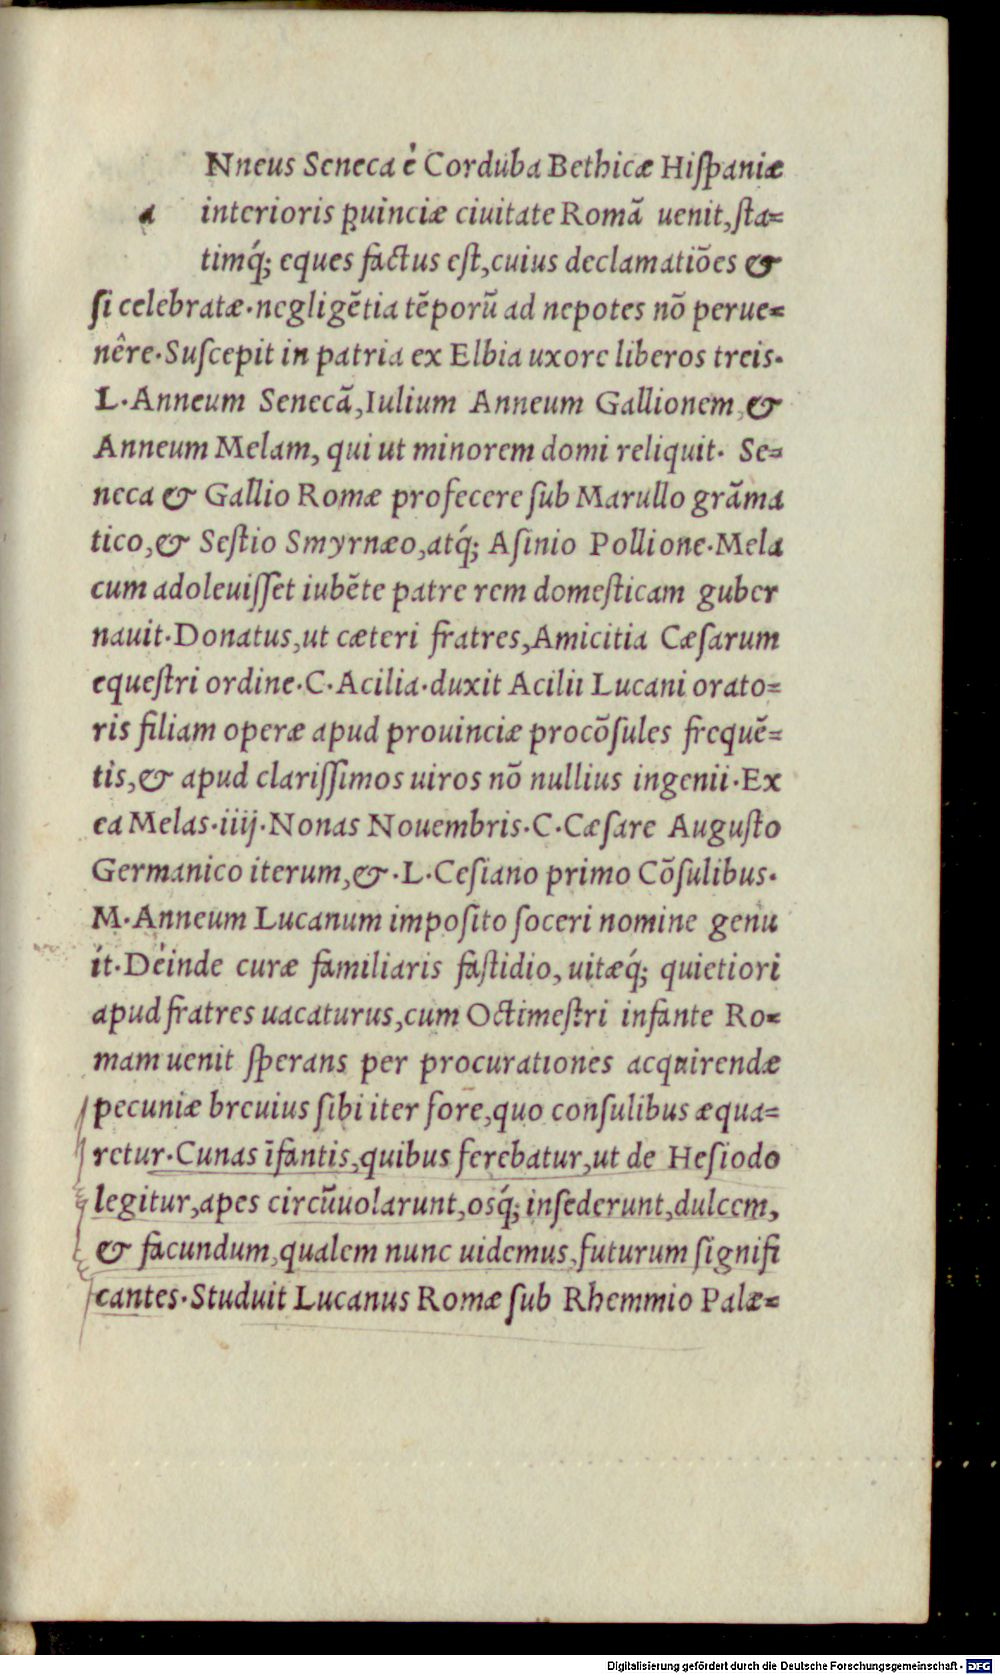 Nneus Seneca è Corduba Bethicæ Hiſpaniæ
a interioris ꝓuinciæ ciuitate Romã uenit,ſta=
timq́; eques factus eſt,cuius declamatiões &
ſi celebratæ·negligẽtia tẽporũ ad nepotes nõ perue=
nêre·Suſcepit in patria ex Elbia uxore liberos treis·
L·Anneum Senecã,Iulium Anneum Gallionem,&
Anneum Melam, qui ut minorem domi reliquit· Se=
neca & Gallio Romæ profecere ſub Marullo grãma
tico,& Seſtio Smyrnæo,atq́; Aſinio Pollione·Mela
cum adoleuiſſet iubẽte patre rem domeſticam guber
nauit·Donatus,ut cæteri fratres,Amicitia Cæſarum
equeſtri ordine·C·Acilia·duxit Acilii Lucani orato=
ris filiam operæ apud prouinciæ procõſules frequẽ=
tis,& apud clariſſimos uiros nõ nullius ingenii·Ex
ea Melas·iiij·Nonas Nouembris·C·Cæſare Auguſto
Germanico iterum,&·L·Ceſiano primo Cõſulibus·
M·Anneum Lucanum impoſito ſoceri nomine genu
it·Deinde curæ familiaris faſtidio,uitæq́; quietiori
apud fratres uacaturus,cum Octimeſtri infante Ro=
mam uenit ſperans per procurationes acquirendæ
pecuniæ breuius ſibi iter fore,quo conſulibus æqua=
retur·Cunas ĩfantis,quibus ferebatur,ut de Heſiodo
legitur,apes circũuolarunt,osq́; inſederunt,dulcem,
& facundum,qualem nunc uidemus,futurum ſignifi
cantes·Studuit Lucanus Romæ ſub Rhemmio Palæ=
Digitalisierung gefördert durch die Deutsche Forschungsgemeinschaft - DFG